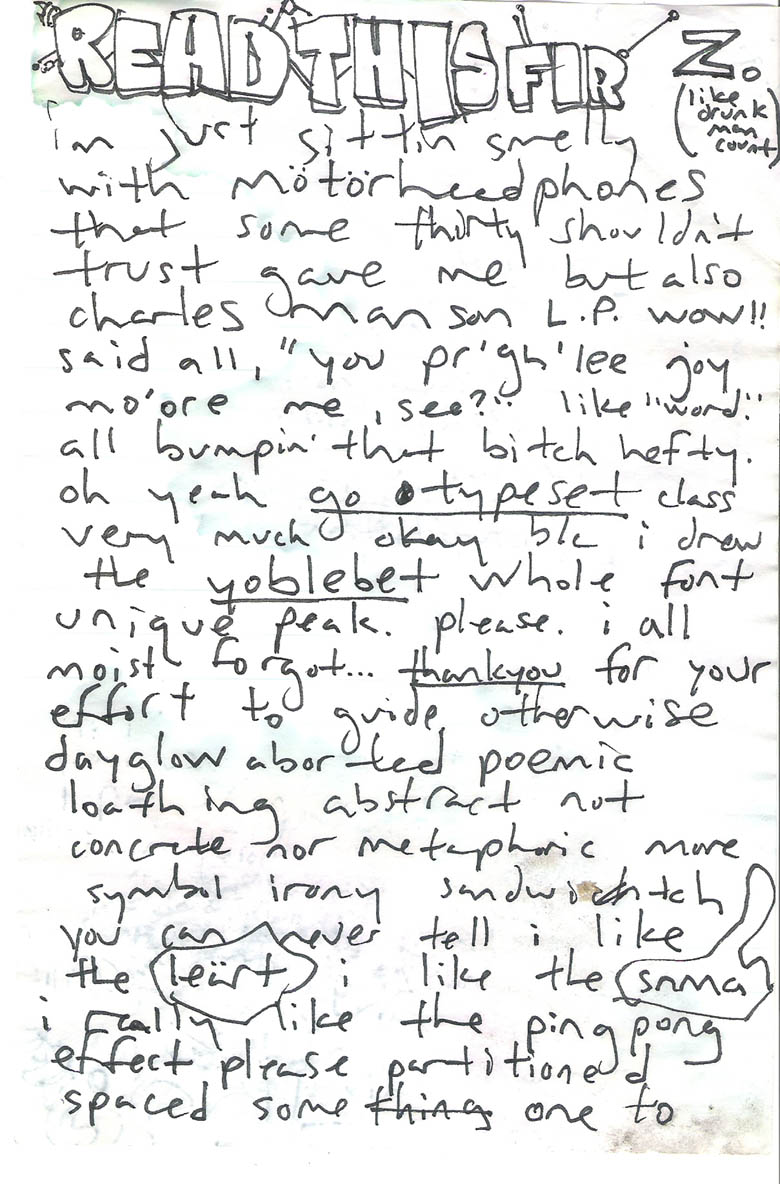 READ THIS FIR
Z.
(like
drunk
man
count)
im just sittin smelly
with mötörheadphones
that some thirty shouldn't
trust gave me but also
charles manson L.P. wow!!
said all, "you pr'gh'lee joy
mo'ore me, see?" like "word."
all bumpin' that bitch hefty.
oh yeah go typeset class
very much okay b/c i drew
the yoblebet whole font
unique peak. please. i all
moist forgot... thankyou for your
effort to guide otherwise
dayglow aborted poemic
loathing abstract not
concrete nor metaphoric more
symbol irony sandwichtch
you can never tell i like
the leärt i like the snma
i really like the ping pong
effect please partitioned
spaced some thing one to